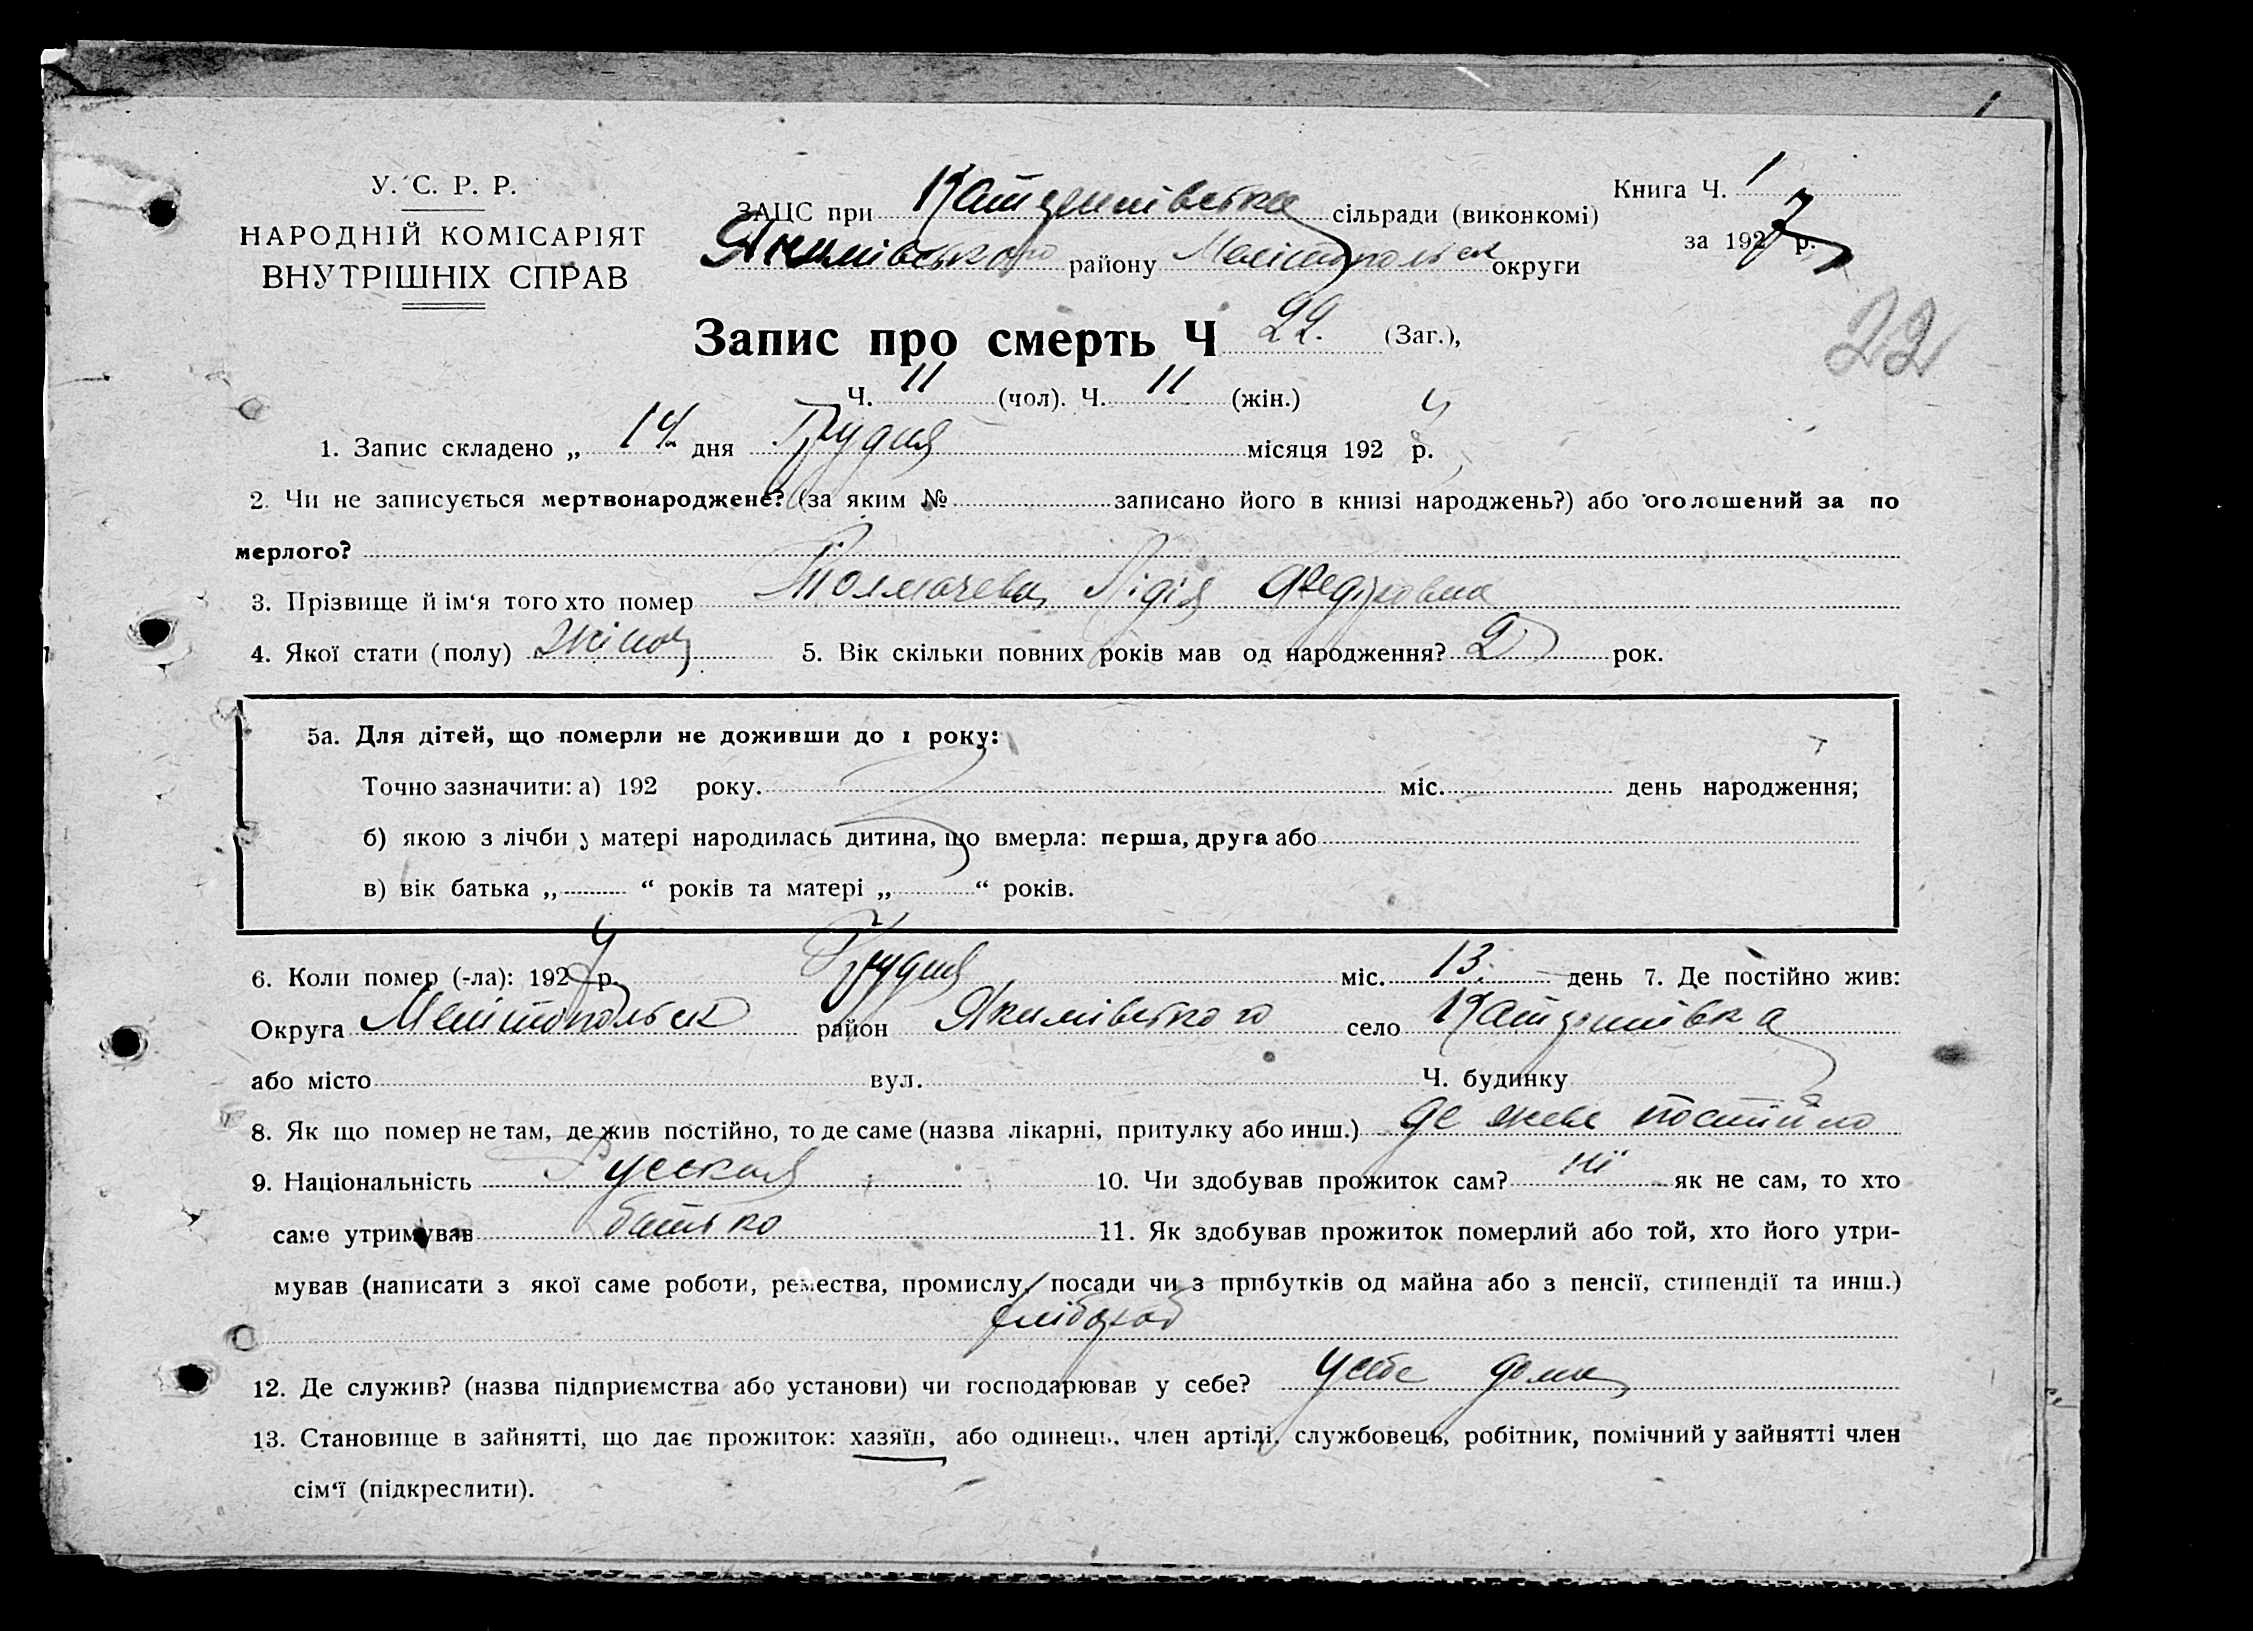 У. С. Р. Р.
НАРОДНІЙ КОМІСАРІЯТ
ВНУТРІШНІХ СПРАВ
ЗАЦС при сільради (виконкомі)
Якимівського району Мелітопольськ округи
Книга Ч. 1
за 1927 р.
22
Запис про смерть Ч 22. (Заг.),
Ч. 11 (чол). Ч. 11 (жін.)
1. Запис складено „ 14 дня Грудня місяця 192 р.
2. Чи не записується мертвонароджене? (за яким № записано його в книзі народжень?) або оголошений за по
мерлого?
3. Прізвище й ім‘я того хто помер Толмачева Лідія Федоровна
4. Якої стати (полу) жіноч 5. Вік скільки повних років мав од народження? 2 рок.
5а. Для дітей, що померли не доживши до 1 року:
Точно зазначити: а) 192 року. міс. день народження;
б) якою з лічби у матері народилась дитина, що вмерла: перша, друга або
в) вік батька „ “ років та матері „ “ років.
6. Коли помер (-ла): 192 р. Грудня міс. 13. день 7. Де постійно жив:
Округа Мелітопольськ район Якимівського село
або місто вул. Ч. будинку
8. Як що помер не там, де жив постійно, то де саме (назва лікарні, притулку або инш.) де живе постійно
9. Національність Руская 10. Чи здобував прожиток сам? ні як не сам, то хто
саме утримував батько 11. Як здобував прожиток померлий або той, хто його утри-
мував (написати з якої саме роботи, ремества, промислу, посади чи з прибутків од майна або з пенсії, стипендії та инш.)
хлібороб
12. Де служив? (назва підприємства або установи) чи господарював у себе? у себе дома
13. Становище в зайнятті, що дає прожиток: хазяїн, або одинець, член артілі, службовець, робітник, помічний у зайнятті член
сім‘ї (підкреслити).